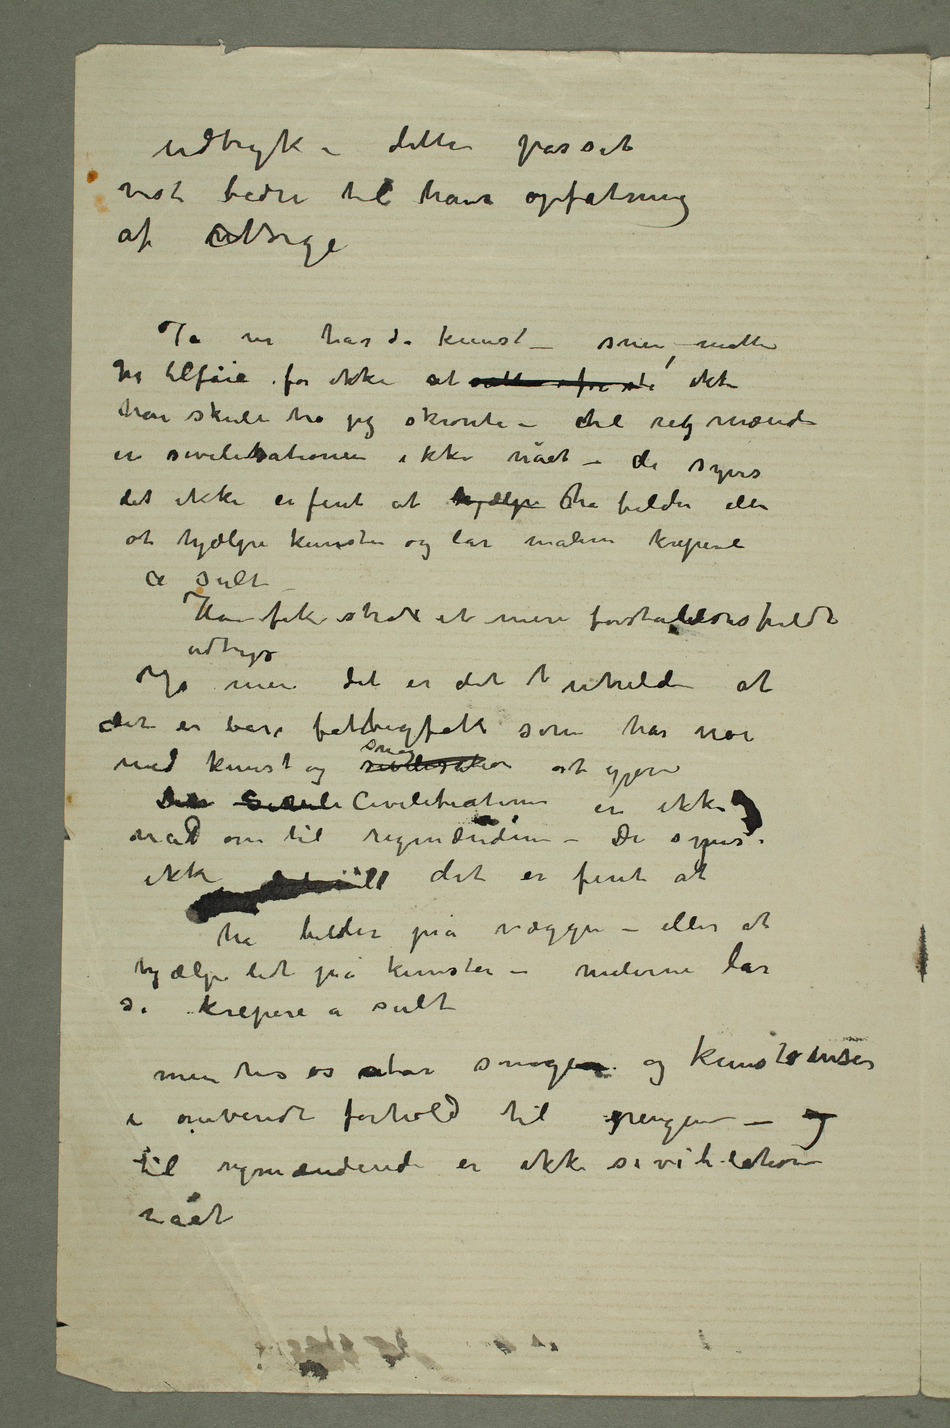 udtryk – dette passet
vist bedre til hans opfatning
af Norge
Ja vi har da kunst – men, måtte
jeg tilføie for ikke at ikke
han skule tro jeg skrønte – til rigmænd
er sivilisationen ikke nået – de synes
det ikke er fint at hjælpe ha bilder eller
at hjælpe kunsten og lar malern krepere
a sult
Han fik strax et mere forståelsesfuldt
udtryk
Ja men det er det uheldi at
det er bare fattigfolk som har noe
med kunst og smag sivilisation at gjøre
Den Civilisationen er ikke
nåd om til rigmændene – De synes
ikke det er fint at
ha bilder på vægge – eller at
hjælpe lidt på kunsten – malerne lar
de krepere a sult
men hos os står smagen og kunstsansen
i omvendt forhold til pengene – og
til rigmændende er ikke sivilisation
nået